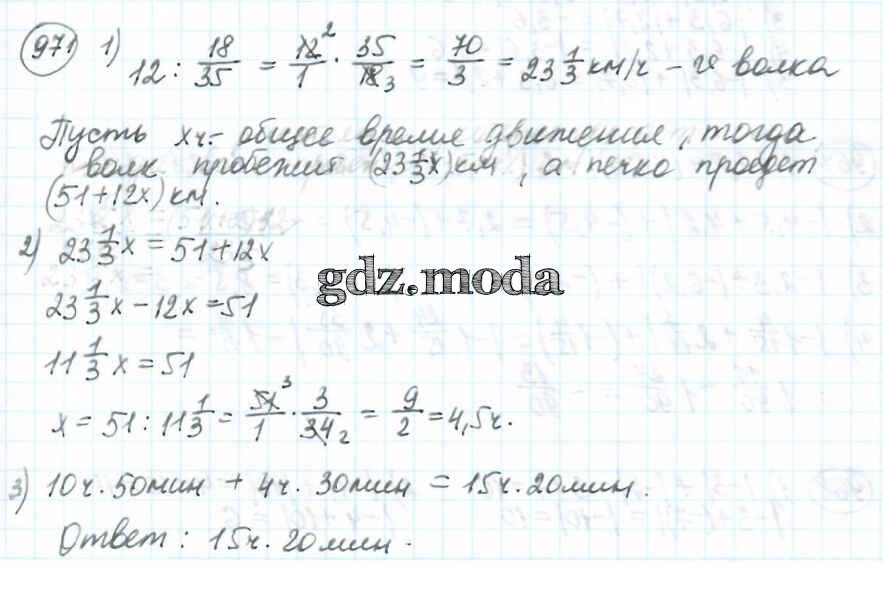 971 1) 12 : 18/35 = 12²/1 · 35/18₃ = 70/3 = 23 1/3 км/ч – 𝒱 волка
Пусть х ч. – общее время движения, тогда
волк пробежит (23 1/3 х) км, а печка проедет
(51+12х) км.
2) 23 1/3 х = 51+12х
gdz.moda
23 1/3 х – 12х = 51
11 1/3 х = 51
х = 51 : 11 1/3 = 51³/1 · 3/34₂ = 9/2 = 4,5 ч.
3) 10 ч. 50 мин + 4 ч. 30 мин = 15 ч. 20 мин.
Ответ: 15 ч. 20 мин.